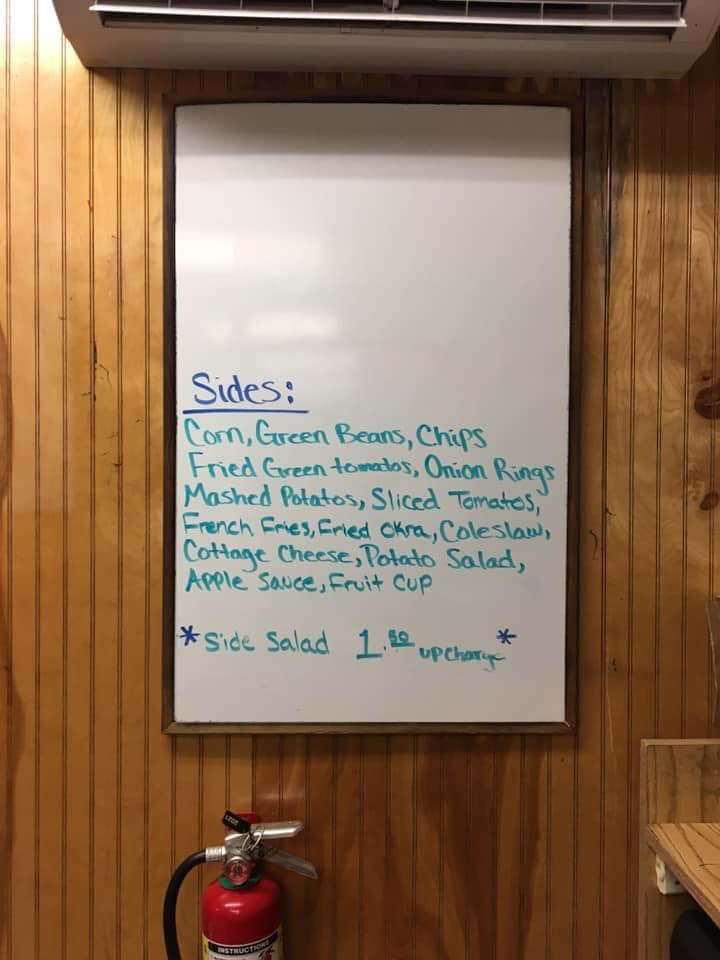 Sides:
Corn, Green Beans, Chips
Fried Green tomatos, Onion Rings
Mashed Potatos, Sliced Tomatos,
French Fries, Fried Okra, Coleslaw,
Cottage Cheese, Potato Salad,
Apple Sauce, Fruit Cup
*Side Salad 1.50 upcharge*
INSTRUCTIONS